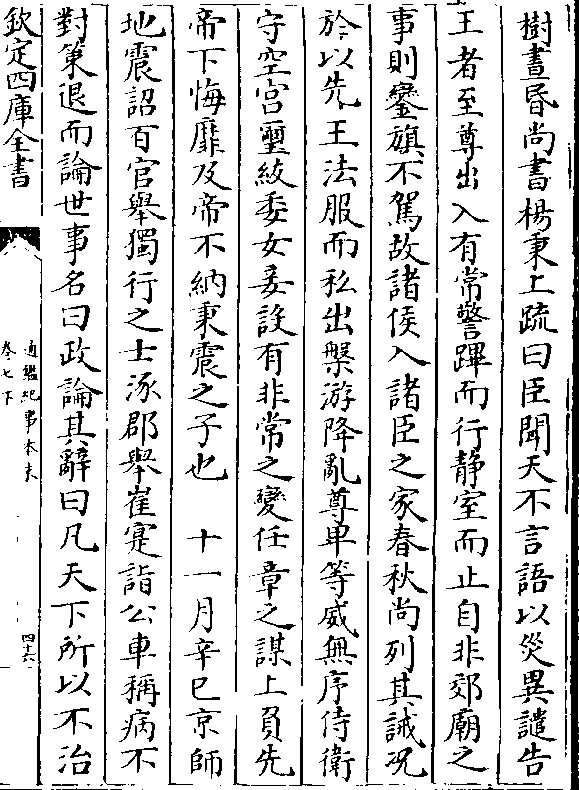 樹晝昏尚書楊秉上疏曰臣聞天不言語以災異譴告
王者至尊出入有常警蹕而行静室而止自非郊廟之
事則鑾旗不駕故諸侯入諸臣之家春秋尚列其誡况
於以先王法服而私出槃游降亂尊卑等威無序侍衛
守空宫璽紱委女妾設有非常之變任章之謀上負先
帝下悔靡及帝不納秉震之子也　十一月辛巳京師
地震詔百官舉獨行之士涿郡舉崔寔詣公車稱病不
對策退而論世事名曰政論其辭曰凡天下所以不治
欽定四庫全書
通鑑紀事本末
卷七下
四十六